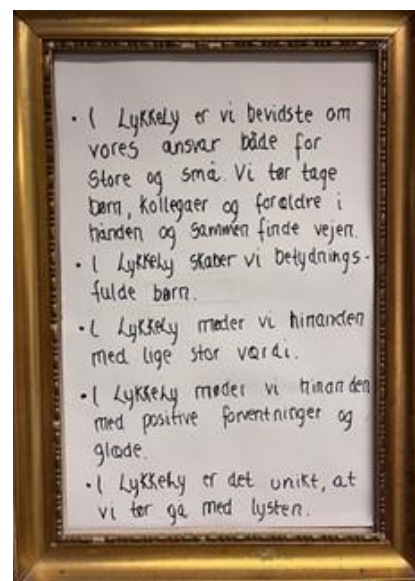 • I Lykkely er vi bevidste om
vores ansvar både for
store og små. Vi tør tage
børn, kollegaer og forældre i
hånden og sammen finde vejen.
• I Lykkely skaber vi betydnings-
fulde børn.
• I Lykkely møder vi hinanden
med lige stor værdi.
• I Lykkely møder vi hinanden
med positive forventninger og
glæde.
• I Lykkely er det unikt, at
vi tør gå med lysten.